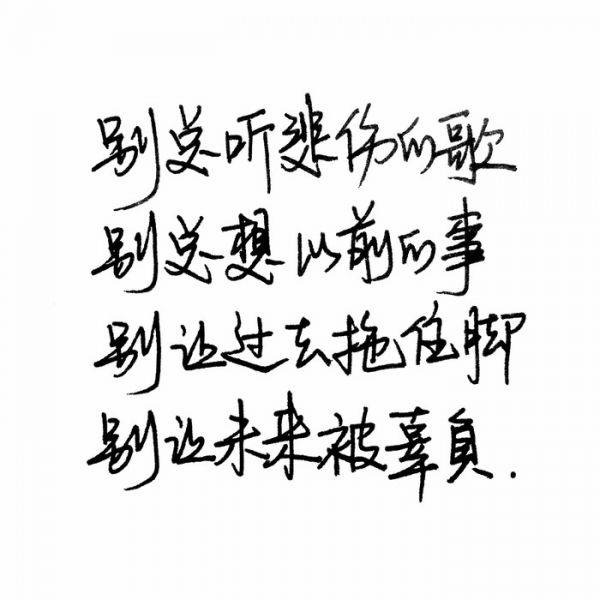 别总听悲伤的歌
别总想以前的事
别让过去拖住脚
别让未来被辜負.